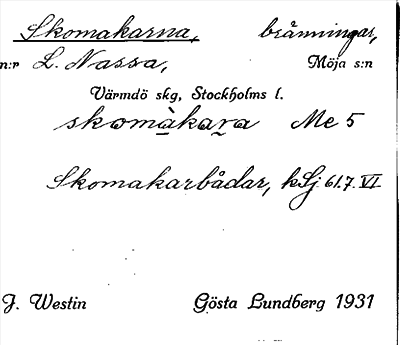 Skomakarna, bränningar,
n:r L. Nassa, Möja s:n
Värmdö skg, Stockholms l.
skomàkara Me 5
Skomakarbådar, kSj 61.7. VI
J. Westin Gösta Lundberg 1931